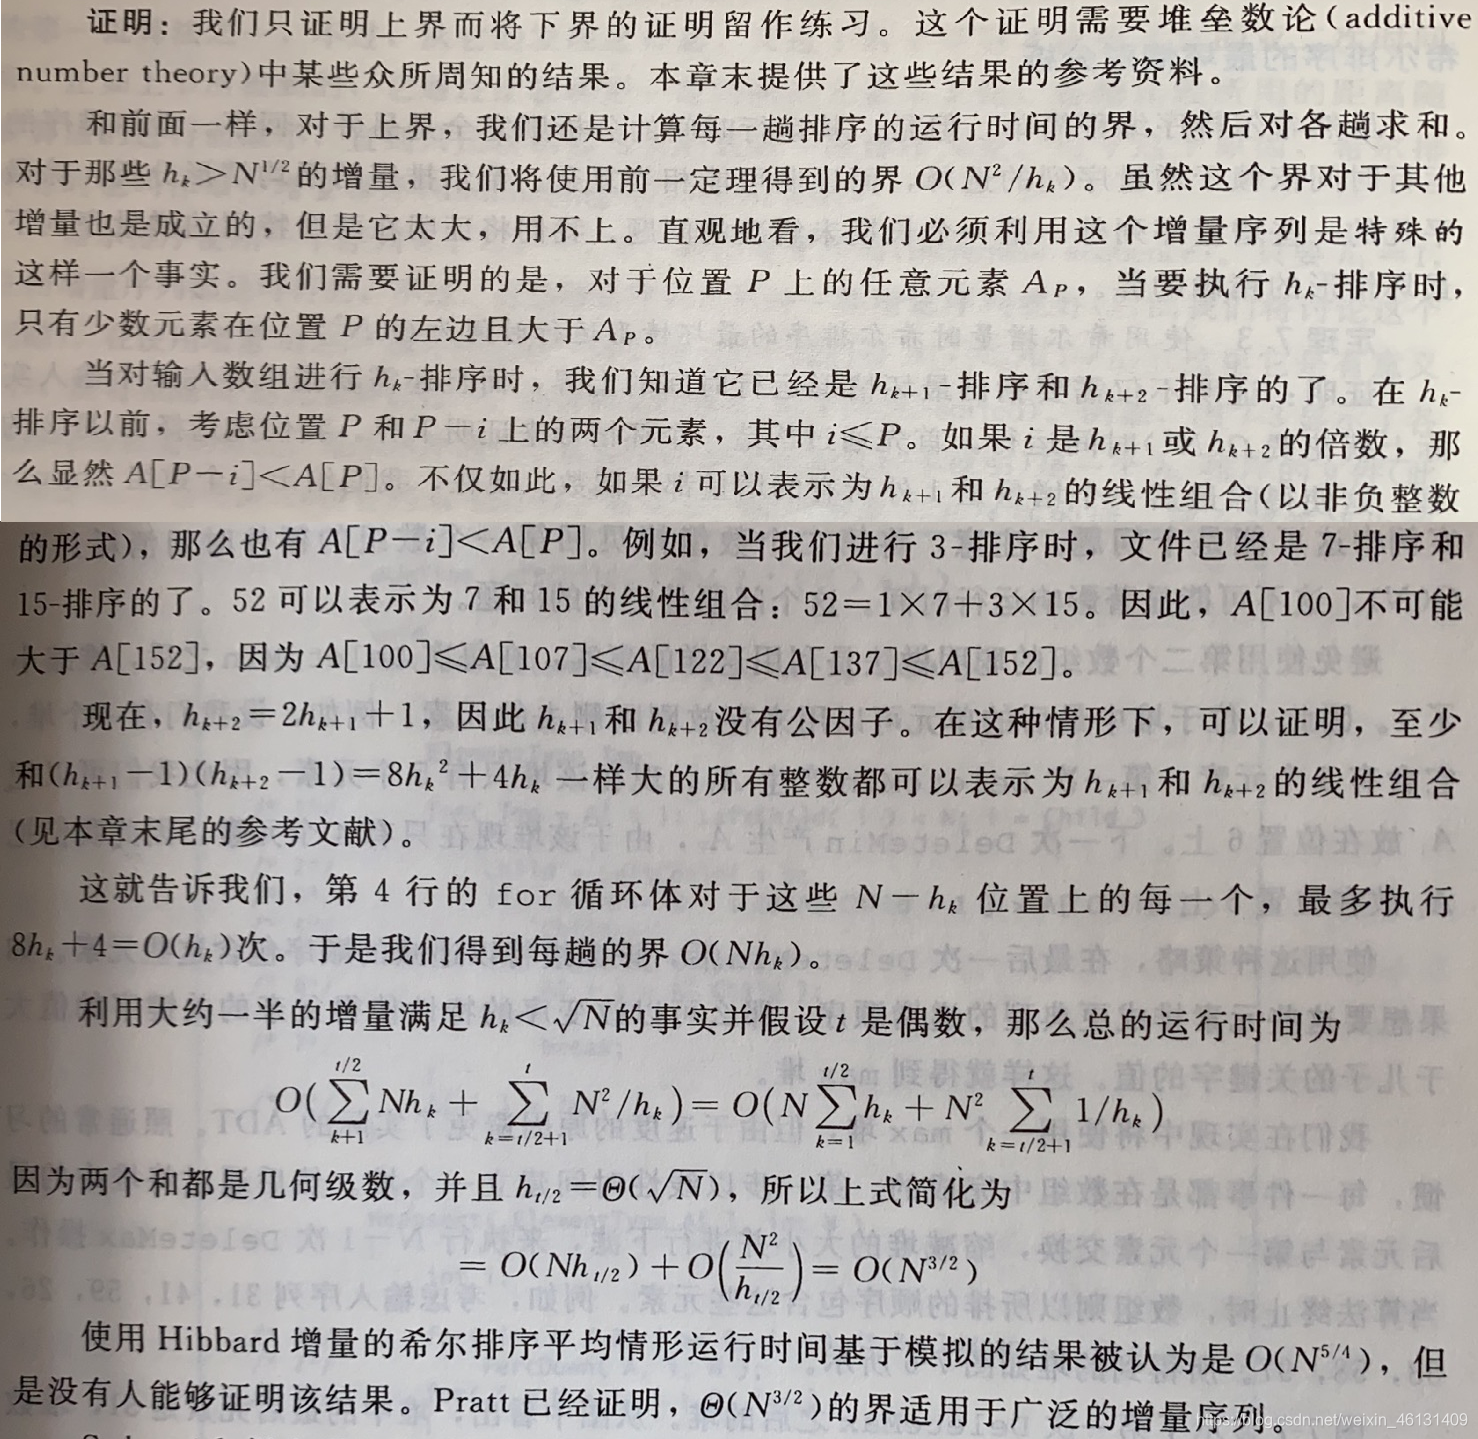 证明：我们只证明上界而将下界的证明留作练习。这个证明需要堆垒数论（additive
number theory)中某些众所周知的结果。本章末提供了这些结果的参考资料。
和前面一样，对于上界，我们还是计算每一趟排序的运行时间的界，然后对各趟求和。
对于那些 hₖ＞N^{1/2}的增量，我们将使用前一定理得到的界 O(N²/hₖ)。虽然这个界对于其他
增量也是成立的，但是它太大，用不上。直观地看，我们必须利用这个增量序列是特殊的
这样一个事实。我们需要证明的是，对于位置 P 上的任意元素 A_P，当要执行 hₖ-排序时，
只有少数元素在位置 P 的左边且大于 A_P。
当对输入数组进行 hₖ-排序时，我们知道它已经是 hₖ₊₁-排序和 hₖ₊₂-排序的了。在 hₖ-
排序以前，考虑位置 P 和 P－i 上的两个元素，其中 i≤P。如果 i 是 hₖ₊₁或 hₖ₊₂的倍数，那
么显然 A[P－i]＜A[P]。不仅如此，如果 i 可以表示为 hₖ₊₁和 hₖ₊₂的线性组合(以非负整数
的形式)，那么也有 A[P－i]＜A[P]。例如，当我们进行 3-排序时，文件已经是 7-排序和
15-排序的了。52 可以表示为 7 和 15 的线性组合：52＝1×7＋3×15。因此，A[100]不可能
大于 A[152]，因为 A[100]≤A[107]≤A[122]≤A[137]≤A[152]。
现在，hₖ₊₂＝2hₖ₊₁＋1，因此 hₖ₊₁和 hₖ₊₂没有公因子。在这种情形下，可以证明，至少
和(hₖ₊₁－1)(hₖ₊₂－1)＝8hₖ²＋4hₖ 一样大的所有整数都可以表示为 hₖ₊₁和 hₖ₊₂的线性组合
(见本章末尾的参考文献)。
这就告诉我们，第 4 行的 for 循环体对于这些 N－hₖ 位置上的每一个，最多执行
8hₖ＋4＝O(hₖ)次。于是我们得到每趟的界 O(Nhₖ)。
利用大约一半的增量满足 hₖ＜√N的事实并假设 t 是偶数，那么总的运行时间为
O(∑_{k+1}^{t/2} Nhₖ ＋ ∑_{k=t/2+1}^{t} N²/hₖ)＝ O(N∑_{k=1}^{t/2} hₖ ＋ N² ∑_{k=t/2+1}^{t} 1/hₖ)
因为两个和都是几何级数，并且 h_{t/2}＝Θ(√N)，所以上式简化为
＝ O(Nh_{t/2})＋O(N²/h_{t/2})＝ O(N^{3/2})
使用 Hibbard 增量的希尔排序平均情形运行时间基于模拟的结果被认为是 O(N^{5/4})，但
是没有人能够证明该结果。Pratt 已经证明，Θ(N^{3/2})的界适用于广泛的增量序列。
https://blog.csdn.net/weixin_46131409